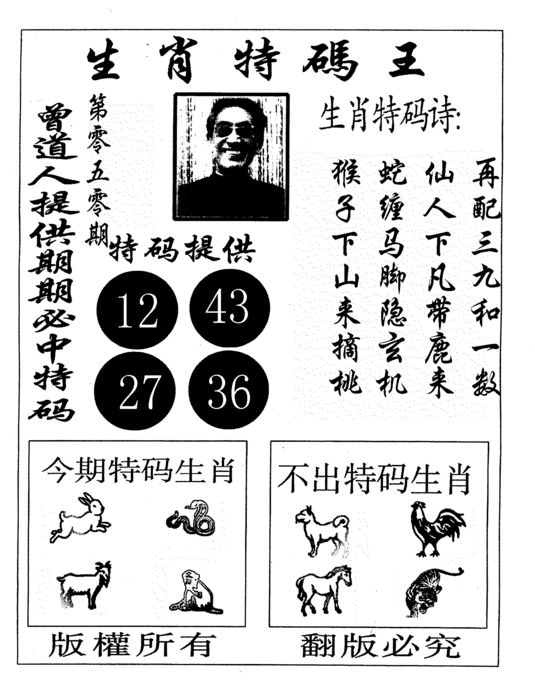 生肖特碼王
曾道人提供期期必中特码
第零五零期
生肖特码诗:
再配三九和一数
仙人下凡带鹿来
蛇缠马脚隐玄机
猴子下山来摘桃
特码提供
12 43
27 36
今期特码生肖
不出特码生肖
版權所有
翻版必究